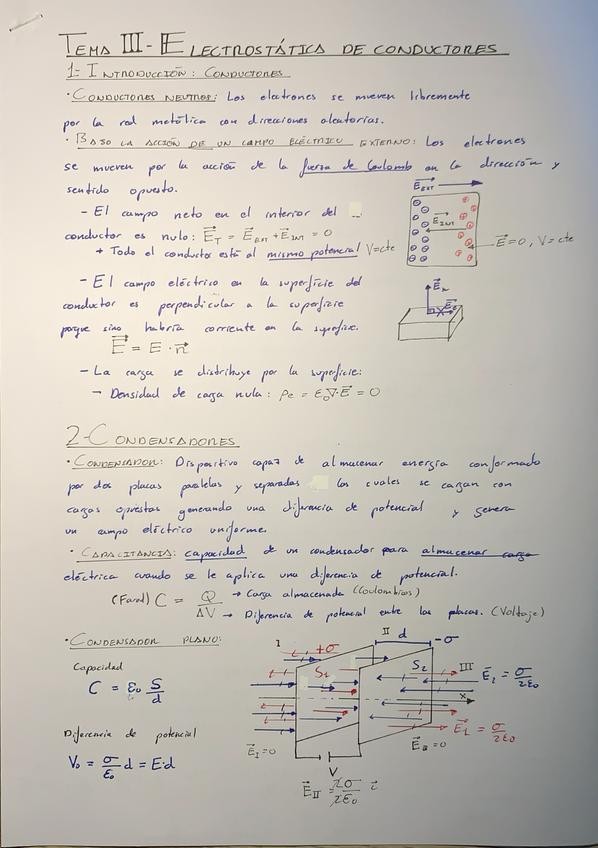 TEMA III - ELECTROSTÁTICA DE CONDUCTORES
1- INTRODUCCIÓN: CONDUCTORES
· CONDUCTORES NEUTROS: Los electrones se mueven libremente
por la red metálica con direcciones aleatorias.
· BAJO LA ACCIÓN DE UN CAMPO ELÉCTRICO EXTERNO: Los electrones
se mueven por la acción de la fuerza de Coulomb en la dirección y
sentido opuesto.
E⃗EXT
- El campo neto en el interior del
conductor es nulo: E⃗T = E⃗EXT + E⃗INT = 0
+ Todo el conductor está al mismo potencial V=cte
E⃗INT
E⃗=0, V=cte
- El campo eléctrico en la superficie del
conductor es perpendicular a la superficie
porque sino habría corriente en la superficie.
E⃗ = E · n⃗
- La carga se distribuye por la superficie:
→ Densidad de carga nula: ρe = ε0∇·E⃗ = 0
2- CONDENSADORES
· CONDENSADOR: Dispositivo capaz de almacenar energía conformado
por dos placas paralelas y separadas las cuales se cargan con
cargas opuestas generando una diferencia de potencial y genera
un campo eléctrico uniforme.
· CAPACITANCIA: capacidad de un condensador para almacenar carga
eléctrica cuando se le aplica una diferencia de potencial.
(Farad) C = Q/ΔV → Carga almacenada (Coulombios)
→ Diferencia de potencial entre las placas. (Voltaje)
· CONDENSADOR PLANO:
Capacidad
C = ε0 S/d
Diferencia de potencial
V0 = σ/ε0 d = E·d
I
+σ
II
d
-σ
S1
S2
III
E⃗2 = σ/2ε0
x
E⃗1 = σ/2ε0
E⃗I=0
E⃗III=0
V
E⃗II = 2σ/2ε0 i⃗